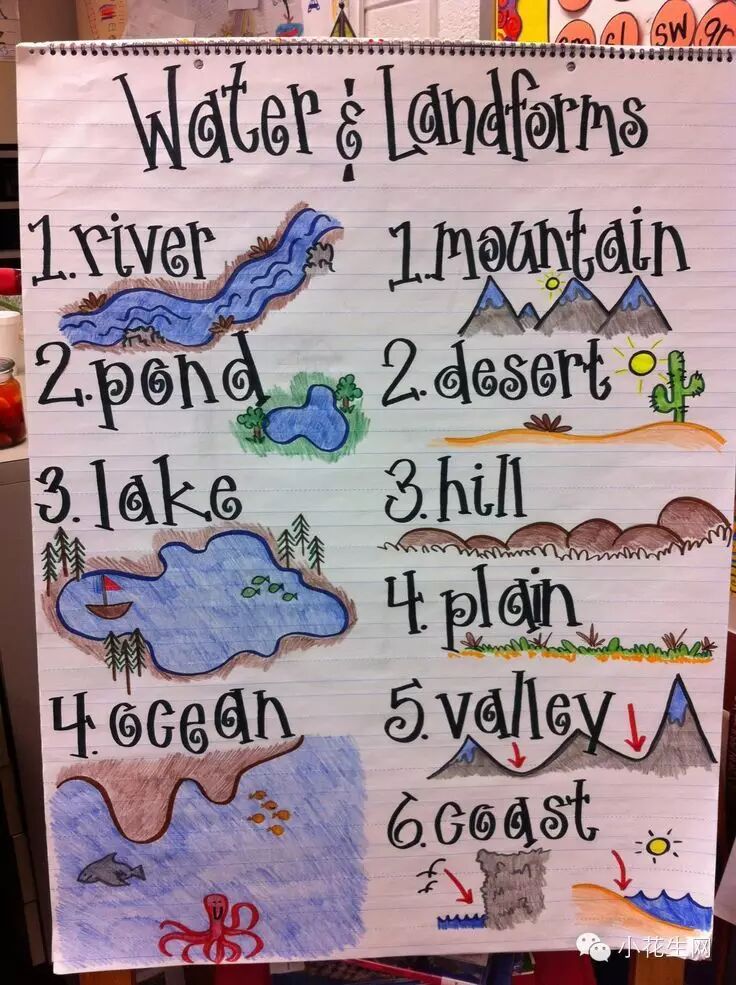 sw gr
Water & Landforms
1. river
2. pond
3. lake
4. ocean
1. mountain
2. desert
3. hill
4. plain
5. valley
6. coast
小花生网